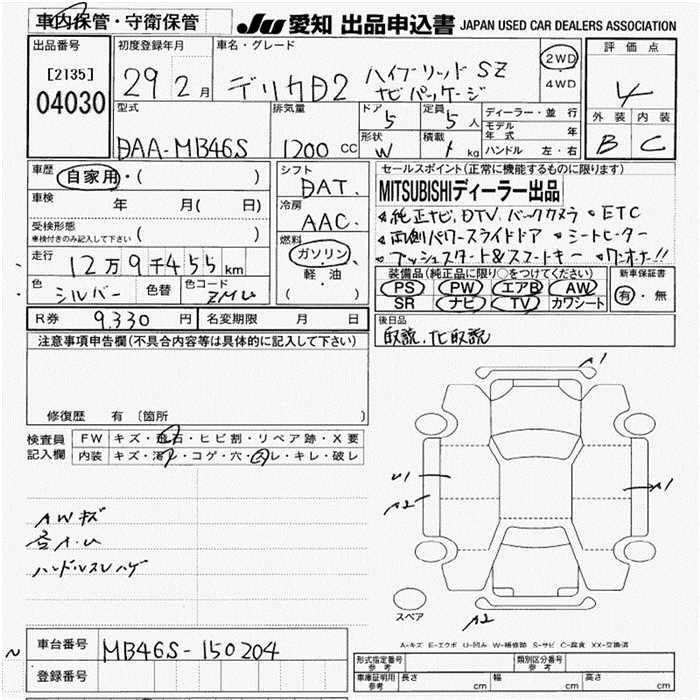 車内保管・守衛保管
JU 愛知 出品申込書 JAPAN USED CAR DEALERS ASSOCIATION
出品番号
[2135]
04030
初度登録年月
29年 2月
車名・グレード
デリカD2 ハイブリッド SZ
ナビパッケージ
2WD
・
4WD
評価点
4
外装 内装
B C
型式
DAA-MB46S
排気量
1200 CC
ドア
5
定員
5人
形状
W
積載
kg
ディーラー・並行
モデル年式 年
ハンドル 左・右
車歴
自家用・( )
車検 年 月( 日)
受検形態
車検付きのみ記入して下さい ( )
走行
12万9千455km
色
シルバー
色替
色コード
ZMU
シフト
DAT.
冷房
AAC.
燃料
ガソリン、
軽・油
( )
セールスポイント(正常に機能するものに限ります)
MITSUBISHIディーラー出品
純正ナビ、DTV、バックカメラ • ETC
両側パワースライドドア • シートヒーター
プッシュスタート&スマートキー ワンオナ!!
装備品(純正品に限り○をつけてください)
PS PW エアB AW
SR ナビ TV カワシート
新車保証書
有・無
R券 9.330 円 名変期限 月 日
後日品
取説、ナビ取説
注意事項申告欄(不具合内容等は具体的に記入して下さい)
修復歴 有 〔箇所 〕
検査員
記入欄
FW キズ・飛石・ヒビ割・リペア跡・X要
内装 キズ・汚・コゲ・穴・スレ・キレ・破レ
AWキズ
各A.U
ハンドルスレハゲ
A1
U1
A2
A1
A2
スペア
A-キズ E-エクボ U-凹み W-補修跡 S-サビ C-腐食 XX-交換済
車台番号 MB46S-150204
登録番号
形式指定番号
参考
類別区分番号
参考
車庫証明用
参考
長さ cm 幅 cm 高さ cm